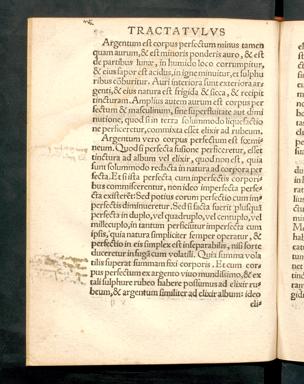 TRACTATVLVS
Argentum est corpus perfectum minus tamen
quam aurum, & est minoris ponderis auro, & est
de partibus lunæ, in humido loco corrumpitur,
& eius sapor est acidus, in igne minuitur, et sulphu
ribus cōburitur. Auri interiora sunt exteriora ar
genti, & eius natura est frigida & sicca, & recipit
tincturam. Amplius autem aurum est corpus per
fectum & masculinum, sine superfluitate aut dimi
nutione, quod si in terra solummodo liquefactio
ne perficeretur, commixta esset elixir ad rubeum.
Argentum vero corpus perfectum est fœmi
neum. Quod si perfecta fusione perficeretur, esset
tinctura ad album vel elixir, quod non est, quia
sunt solummodo redacta in natura ad corpora per
fecta. Et si ista perfecta cum imperfectis corpori-
bus commiscerentur, non ideo imperfecta perfe-
cta existerēt: Sed potius eorum perfectio cum im-
perfectis diminueretur. Sed si facta fuerit plusquā
perfecta in duplo, vel quadruplo, vel centuplo, vel
millecuplo, in tantum perficiuntur imperfecta cum
ipsis, quia natura simpliciter semper operatur, &
perfectio in eis simplex est inseparabilis, nisi forte
duceretur in fugā cum volatili. Quia summa vola
tilis superat summam fixi corporis. Et cum cor-
pus perfectum ex argento viuo mundissimo, & ex
tali sulphure rubeo habere possimus ad elixir ru-
beum, & argentum similiter ad elixir album: ideo
eli-